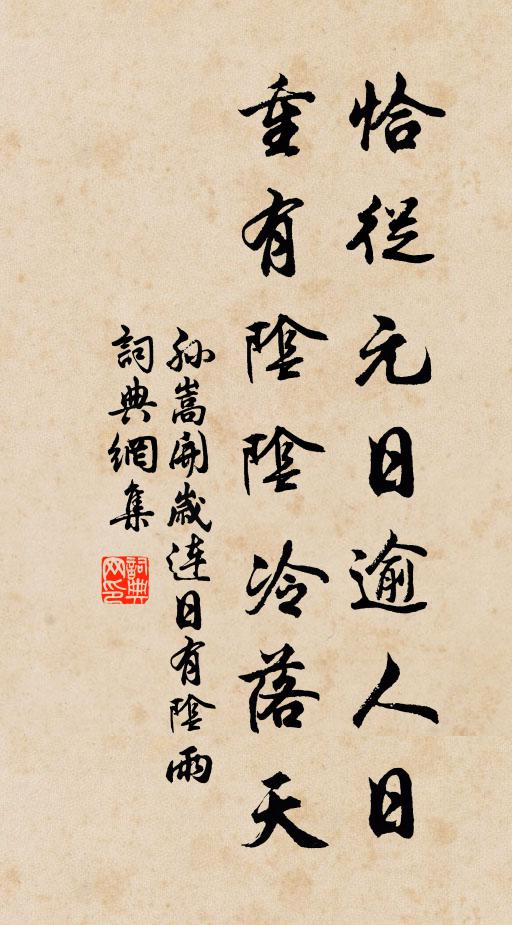 恰從元日逾人日
重有陰陰冷落天
孫嵩開歲連日有陰雨
詞典網集
詞典網印